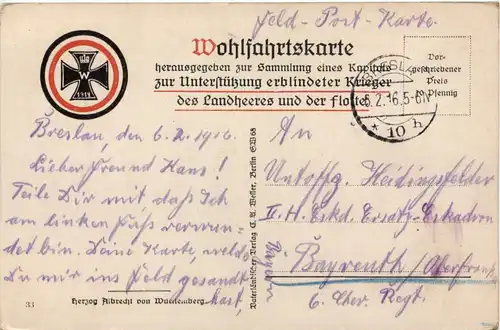 Feld-Post-Karte.
Wohlfahrtskarte
herausgegeben zur Sammlung eines Kapitals
zur Unterstützung erblindeter Krieger
des Landheeres und der Flotte
Vor-
geschriebener
Preis
10 Pfennig
BRESLAU
5.2.16.5-6N
* 10 h
W
1914
Breslau, den 6.2.1916.
Lieber Freund Hans!
Teile Dir mit daß Ich
am linken Fuß verwun-
det bin. Deine Karte, welche
Du mir ins Feld gesandt
hast,
33
Herzog Albrecht von Württemberg
Vaterländischer Verlag C. A. Weller, Berlin SW 68
An
Untoffz. Heidingsfelder
II. H. Eskd. Ersatz-Eskadron
Bayreuth/Oberfrank
Bayern
6. Chev. Regt.